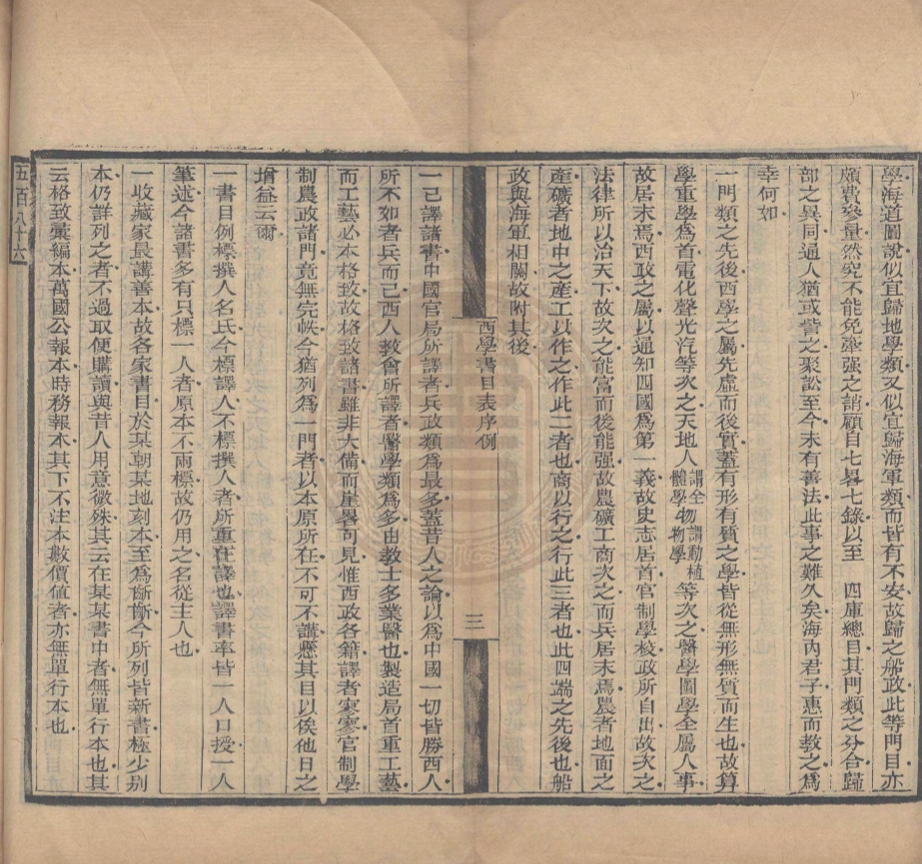 學海道圖說似宜歸地學類又似宜歸海軍類而皆有不安故歸之船政此等門目亦
頗費參量然究不能免牽强之誚顧自七畧七錄以至　四庫總目其門類之分合歸
部之異同通人猶或訾之聚訟至今未有善法此事之難久矣海內君子惠而敎之爲
幸何如
一門類之先後西學之屬先虛而後實蓋有形有質之學皆從無形無質而生也故算
學重學爲首電化聲光汽等次之天地人謂全體學物謂動植物學等次之醫學圖學全屬人事
故居末焉西政之屬以通知四國爲第一義故史志居首官制學校政所自出故次之
法律所以治天下故次之能富而後能强故農礦工商次之而兵居末焉農者地面之
產礦者地中之產工以作之作此二者也商以行之行此三者也此四端之先後也船
政與海軍相關故附其後
西學書目表序例
三
一已譯諸書中國官局所譯者兵政類爲最多蓋昔人之論以爲中國一切皆勝西人
所不如者兵而已西人敎會所譯者醫學類爲多由敎士多業醫也製造局首重工藝
而工藝必本格致故格致諸書雖非大備而崖畧可見惟西政各籍譯者寥寥官制學
制農政諸門竟無完帙今猶列爲一門者以本原所在不可不講懸其目以俟他日之
增益云爾
一書目例標撰人名氏今標譯人不標撰人者所重在譯也譯書率皆一人口授一人
筆述今諸書多有只標一人者原本不兩標故仍用之名從主人也
一收藏家最講善本故各家書目於某朝某地刻本至爲斷斷今所列皆新書極少別
本仍詳列之者不過取便購讀與昔人用意微殊其云在某某書中者無單行本也其
云格致彙編本萬國公報本時務報本其下不注本數價值者亦無單行本也
五百八十六